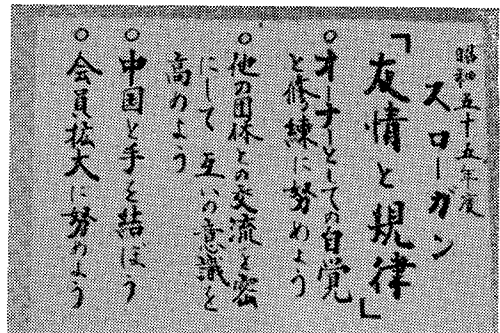 昭和五十五年度
スローガン
「友情と規律」
○オーナーとしての自覚
と修練に努めよう
○他の団体との交流を密
にして互いの意識を
高めよう
○中国と手を結ぼう
○会員拡大に努めよう